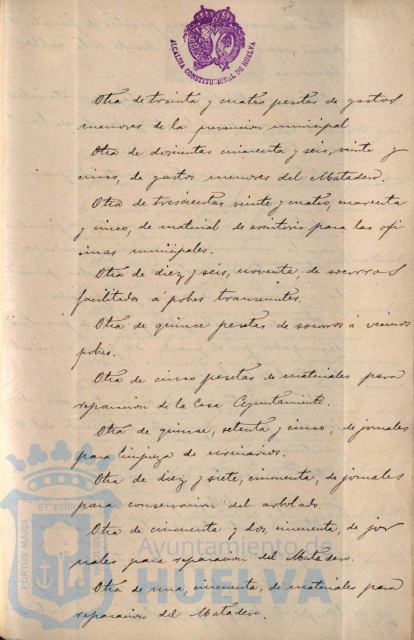 ALCALDIA CONSTITUCIONAL DE HUELVA
Otra de treinta y cuatro pesetas de gastos
menores de la prevencion municipal
Otra de doscientas cincuenta y seis, veinte y
cinco, de gastos menores del Matadero.
Otra de trescientas veinte y cuatro, cuarenta
y cinco, de material de escritorio para las ofi
cinas municipales.
Otra de diez y seis, noventa, de socorros
facilitados a pobres transeuntes.
Otra de quince pesetas de socorros á vecinos
pobres.
Otra de cinco pesetas de materiales para
reparacion de la Casa Ayuntamiento.
Otra de quince, setenta y cinco, de jornales
para limpieza de urinarios.
Otra de diez y siete, cincuenta, de jornales
para conservacion del arbolado.
Otra de cincuenta y dos, cincuenta, de jor
nales para reparacion del Matadero.
Otra de una, cincuenta, de materiales para
reparacion del Matadero.
PORTUS MARIS
ET TERRAE
Ayuntamiento de
HUELVA